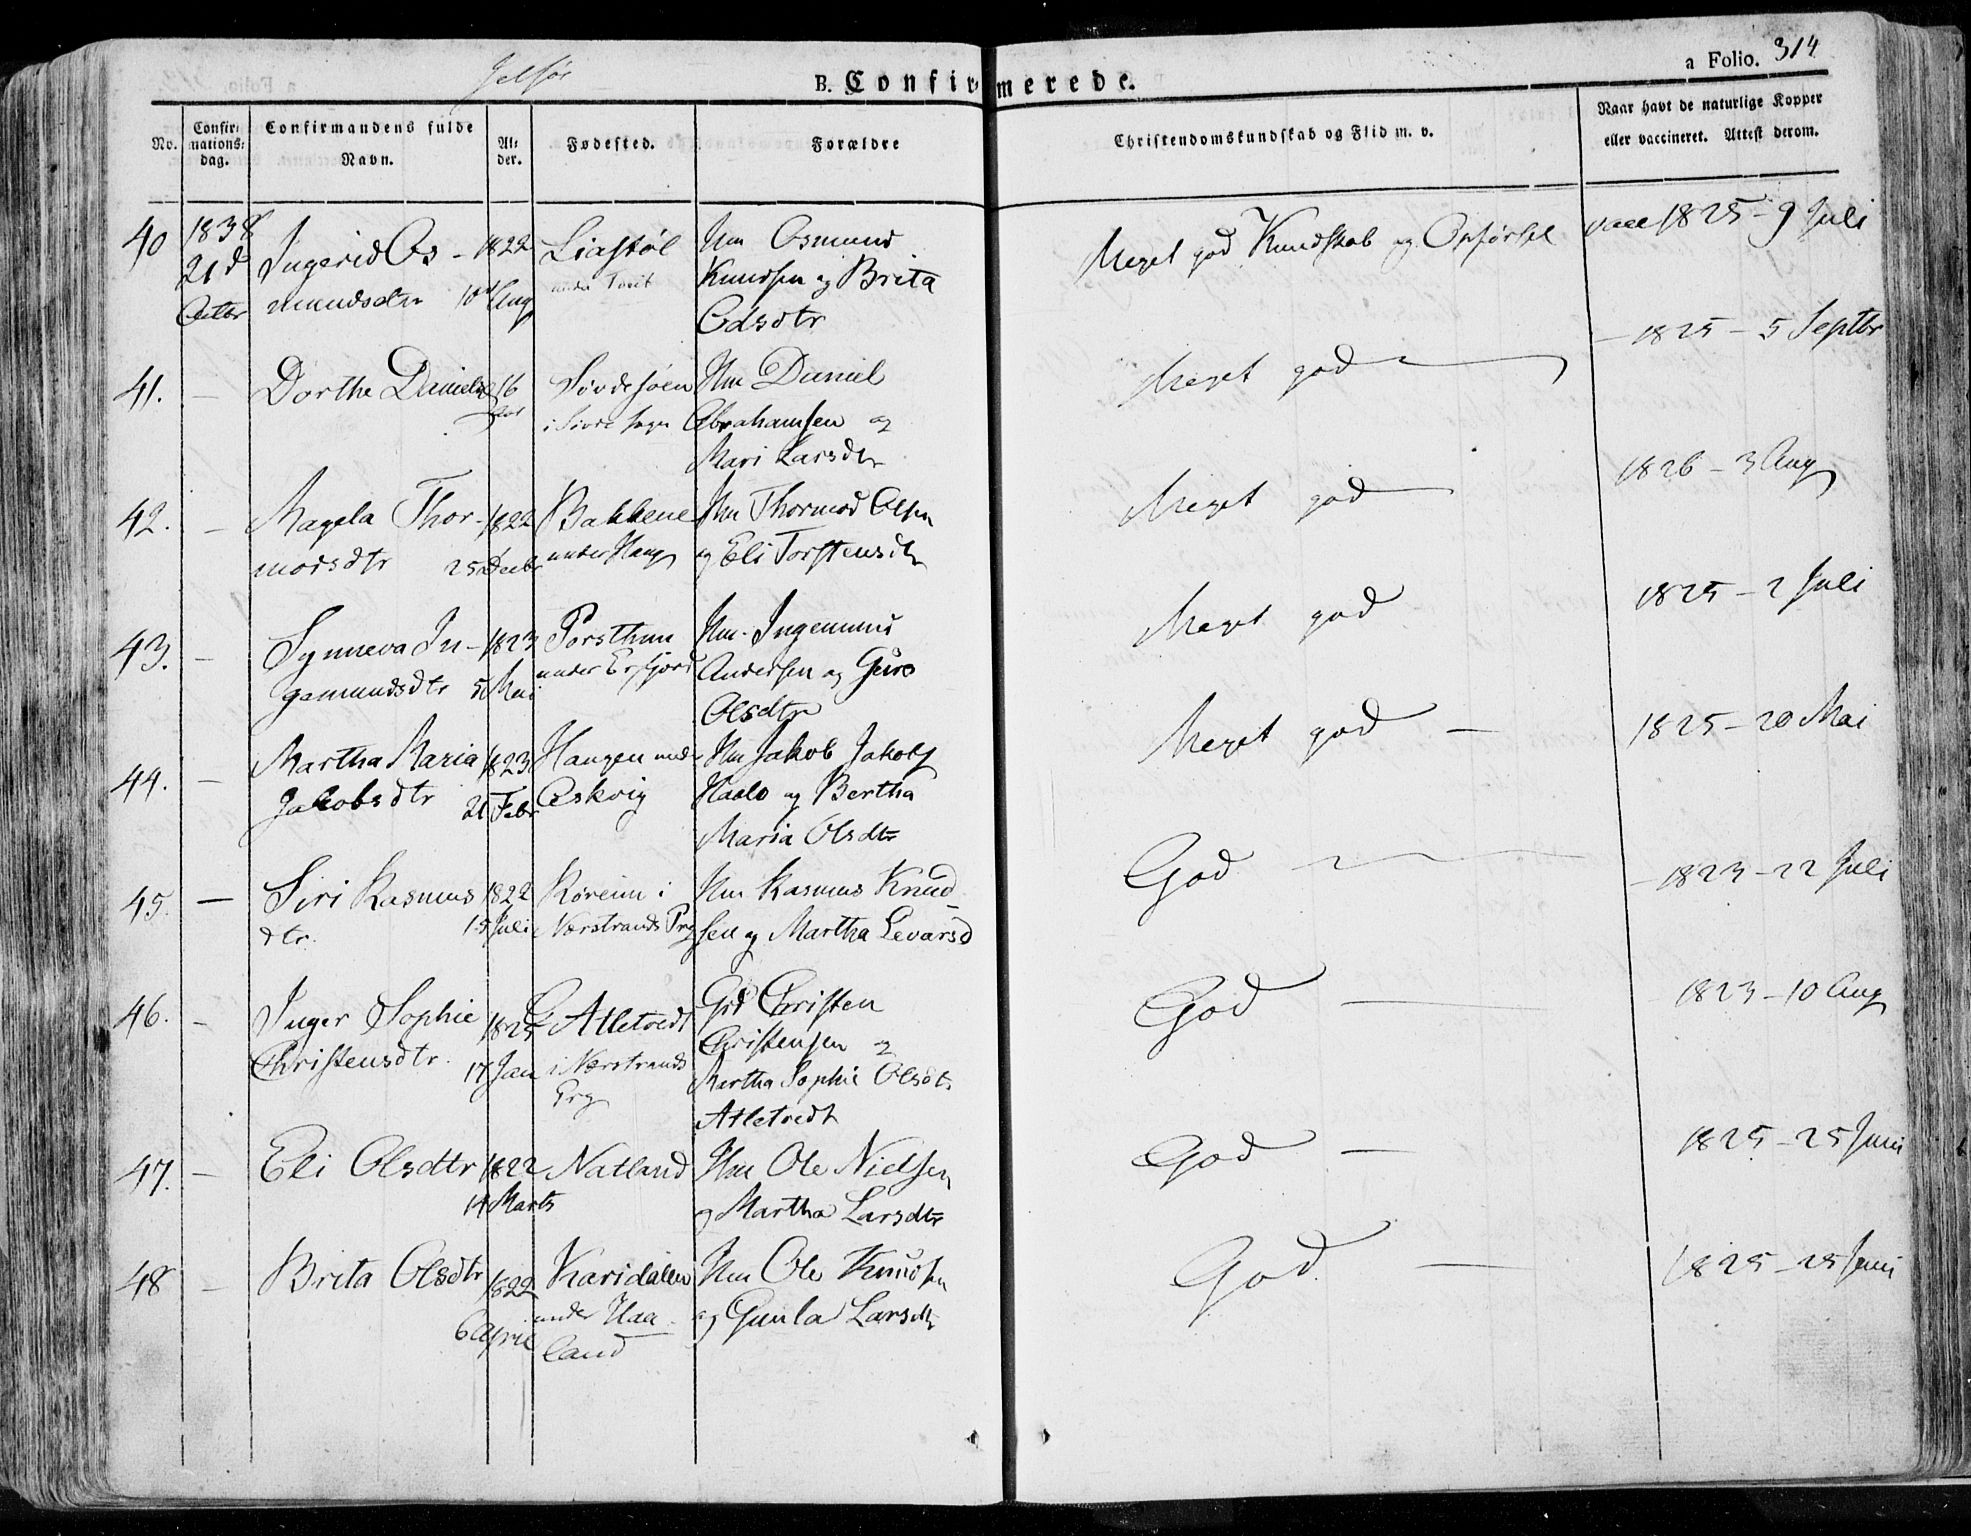 Jelsør
B. Confirmerede.
a Folio. 314
No.
Confir:
mations:
dag.
Confirmandens fulde
Navn.
Al:
der.
Fødested.
Forældre
Christendomskundskab og Flid m. v.
Naar havt de naturlige Kopper
eller vaccineret. Attest derom.
40 1838 Ingerid Os- 1822 Liastøl Hm Osmund Meget god Kundskab og Opførsel vacc 1825 - 9 Juli
21d mundsdtr 10d Aug under Tveit Knudsen og Brita
Octbr Edsdtr
41. — Dorthe Danielsd 16 Søvdesøen Hm Daniel Meget god — — 1825 - 5 Septbr
Aar i Sövde Sogn Abrahamsen og
Mari Larsdtr
42. — Ragela Thor- 1822 Bakkene Hm Thormod Olsen Meget god — 1826 - 3 Aug
modsdtr 25 Decbr under Haug og Eli Torstensdtr
43. — Synneva In- 1823 Porsthun Hm. Ingemund Meget god 1825 - 2 Juli
gemundsdtr 5 Mai under Erfjord Andersen og Guro
Olsdtr
44. — Martha Maria 1823 Haugen und Hm Jakob Jakobs Meget god — 1825 - 20 Mai
Jakobsdtr 21 Febr Askvig Haalo og Bertha
Maria Olsdtr
45. — Siri Rasmus 1822 Røreim i Hm Rasmus Knud- God — — 1823 - 22 Juli
dtr. 15 Juli Nærstrands Prg sen og Martha Levarsd
46. — Inger Sophie 1823 Atletvedt Grd Christen God — 1823 - 10 Aug
Christensdtr. 17 Jan i Nærstrands Christensen og
Prg Martha Sophie Olsdtr
Atletvedt
47. — Eli Olsdtr 1822 Natland Hm Ole Nielsen God — 1825 - 25 Juni
14 Marts og Martha Larsdtr
48 — Brita Olsdtr 1822 Karidalen Hm Ole Knudsen God — 1825 - 25 Juni
6 April under Haa- og Gunla Larsdtr
land